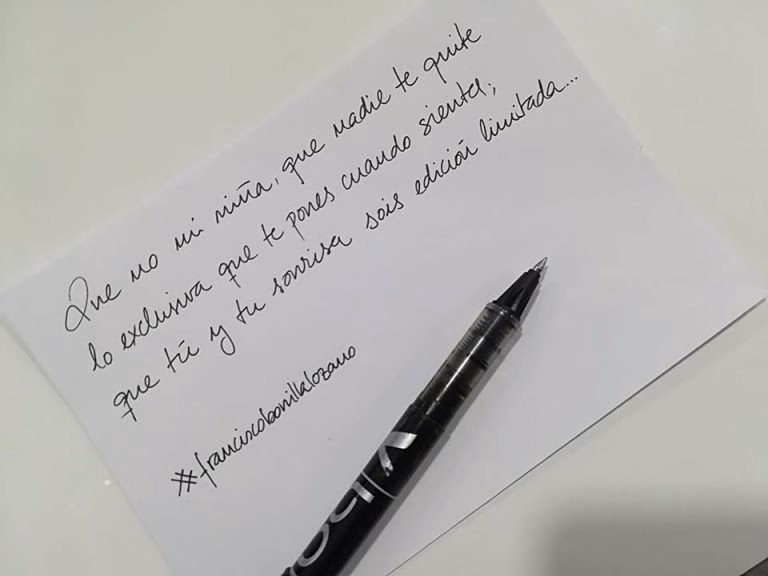 Que no mi niña, que nadie te quite
lo exclusiva que te pones cuando sienta,
que tú y tu sonrisa sois edición limitada...
#franciscobonillalozano